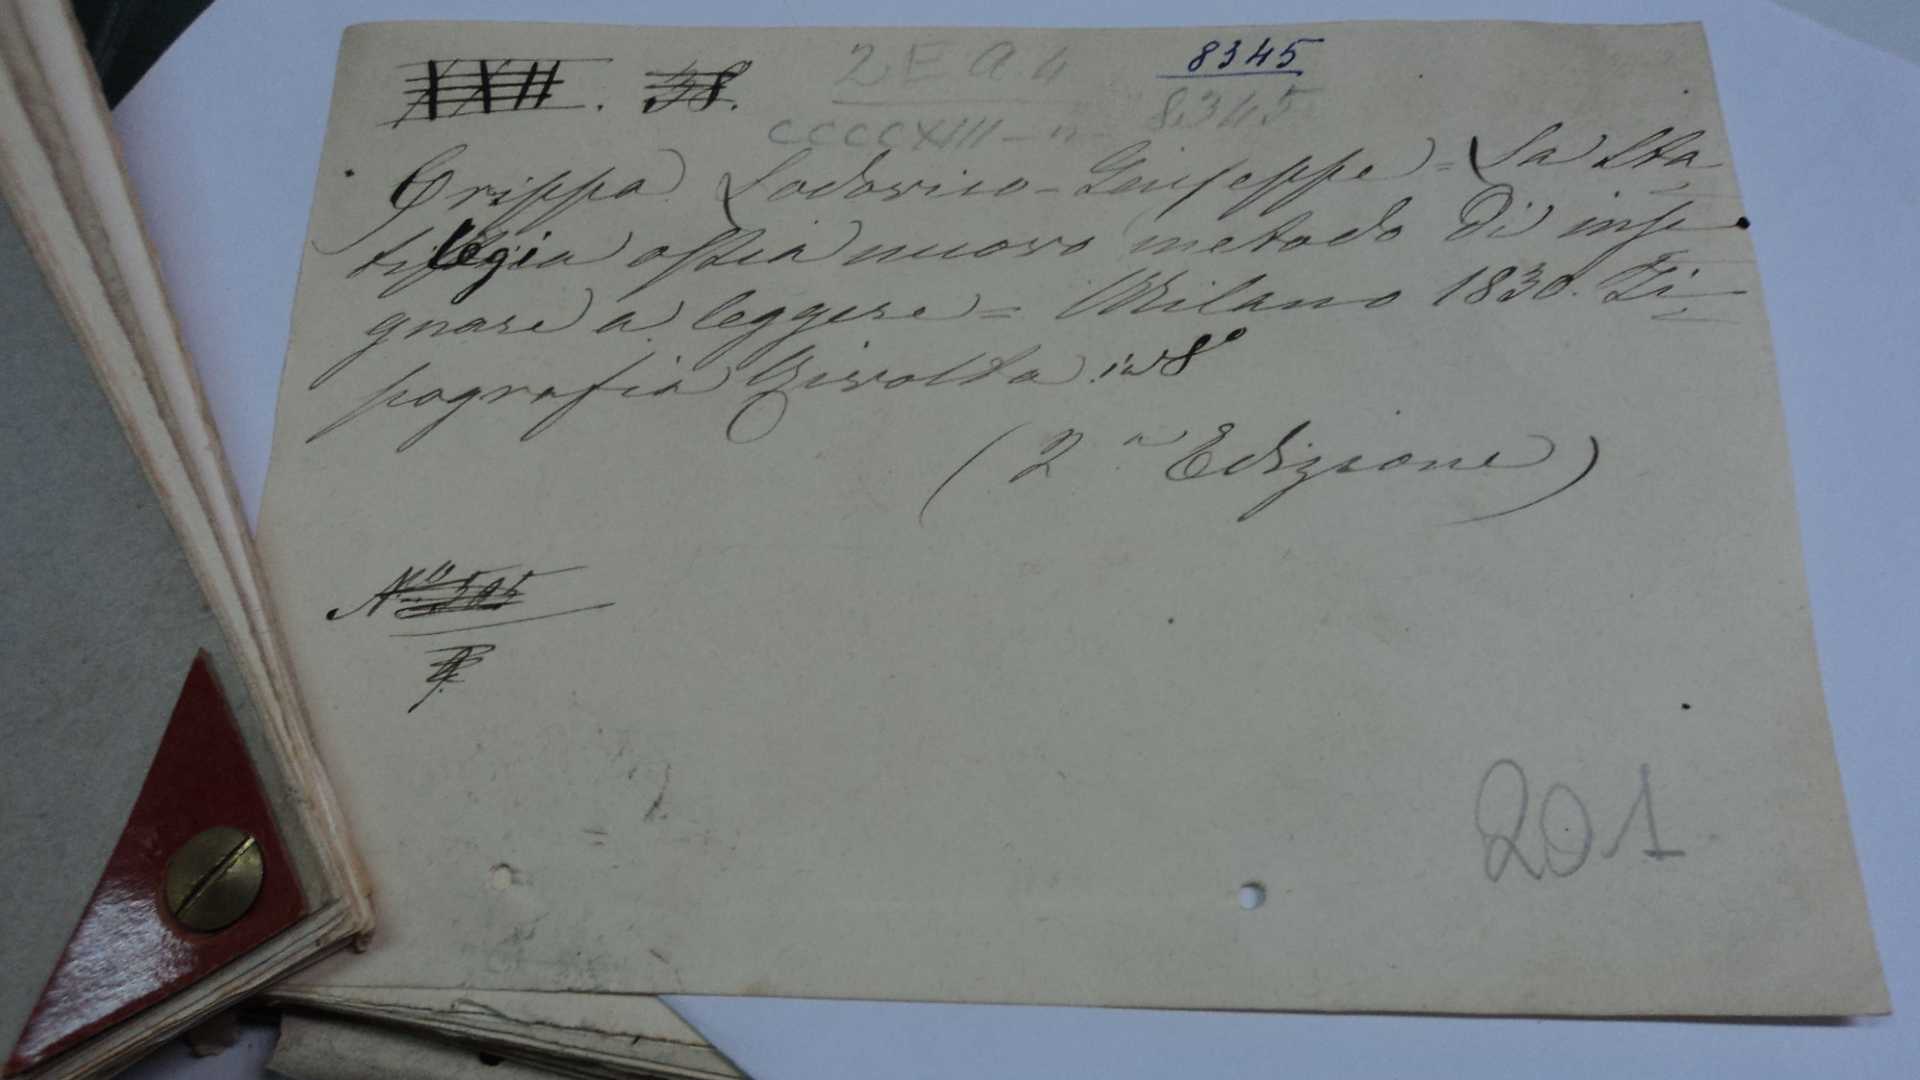 XXII. 58. 2 E A. 4 8345
CCCCXIII-n- 8345
Crippa Lodovico-Giuseppe = La Sta
tilegia ossia nuovo metodo di inse
gnare a leggere = Milano 1830. Ti
pografia Rivolta in 8°
(2ª Edizione)
N° 505
201